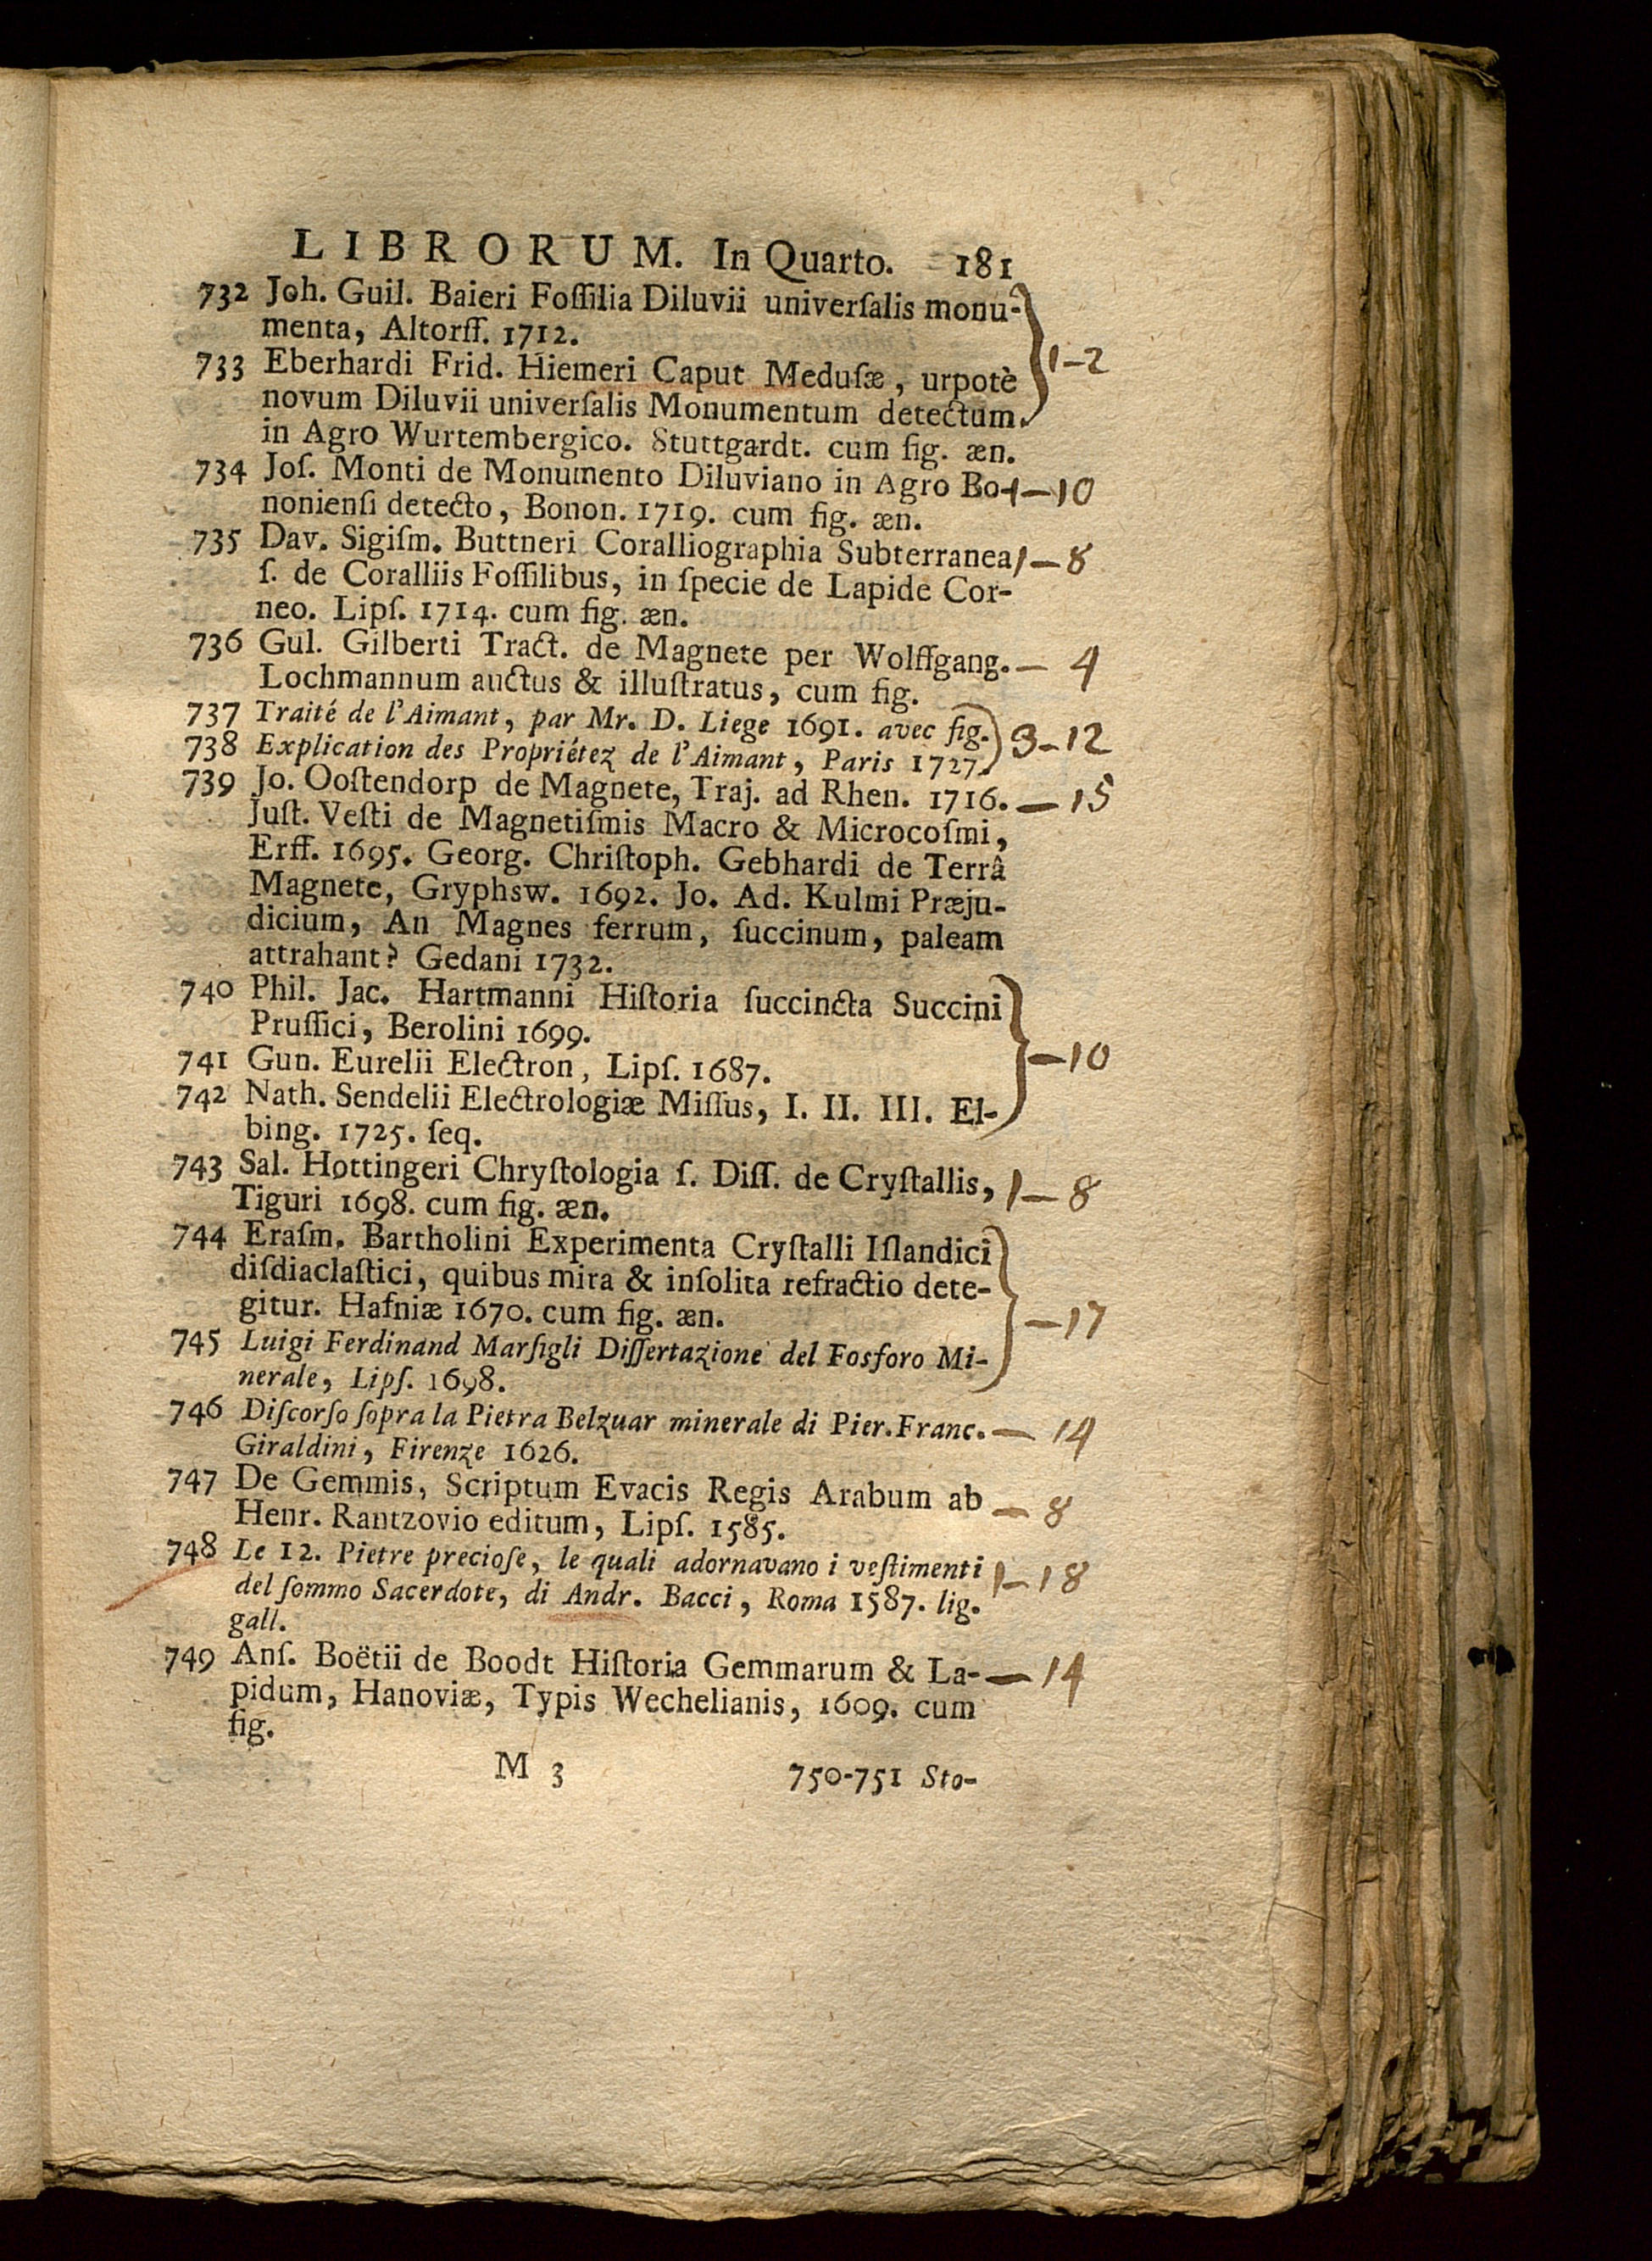 LIBRORUM. In Quarto. 181
732 Joh. Guil. Baieri Foſſilia Diluvii univerſalis monu-
menta, Altorff. 1712.
733 Eberhardi Frid. Hiemeri Caput Meduſæ, urpotè 1-2
novum Diluvii univerſalis Monumentum detectum
in Agro Wurtembergico. Stuttgardt. cum fig. æn.
734 Joſ. Monti de Monumento Diluviano in Agro Bo- 1-10
nonienſi detecto, Bonon. 1719. cum fig. æn.
735 Dav. Sigiſm. Buttneri Coralliographia Subterranea 1-8
ſ. de Coralliis Foſſilibus, in ſpecie de Lapide Cor-
neo. Lipſ. 1714. cum fig. æn.
736 Gul. Gilberti Tract. de Magnete per Wolffgang. - 4
Lochmannum auctus & illuſtratus, cum fig.
737 Traité de l'Aimant, par Mr. D. Liege 1691. avec fig. 3-12
738 Explication des Propriétez de l'Aimant, Paris 1727.
739 Jo. Ooſtendorp de Magnete, Traj. ad Rhen. 1716. - 15
Juſt. Veſti de Magnetiſmis Macro & Microcoſmi,
Erff. 1695. Georg. Chriſtoph. Gebhardi de Terrâ
Magnete, Gryphsw. 1692. Jo. Ad. Kulmi Præju-
dicium, An Magnes ferrum, ſuccinum, paleam
attrahant? Gedani 1732.
740 Phil. Jac. Hartmanni Hiſtoria ſuccincta Succini
Pruſſici, Berolini 1699.
741 Gun. Eurelii Electron, Lipſ. 1687. -10
742 Nath. Sendelii Electrologiæ Miſſus, I. II. III. El-
bing. 1725. ſeq.
743 Sal. Hottingeri Chryſtologia ſ. Diſſ. de Cryſtallis, 1-8
Tiguri 1698. cum fig. æn.
744 Eraſm. Bartholini Experimenta Cryſtalli Iſlandici
diſdiaclaſtici, quibus mira & inſolita refractio dete-
gitur. Hafniæ 1670. cum fig. æn. -17
745 Luigi Ferdinand Marſigli Diſſertazione del Fosforo Mi-
nerale, Lipſ. 1698.
746 Diſcorſo ſopra la Pietra Belzuar minerale di Pier. Franc. - 14
Giraldini, Firenze 1626.
747 De Gemmis, Scriptum Evacis Regis Arabum ab - 8
Henr. Rantzovio editum, Lipſ. 1585.
748 Le 12. Pietre precioſe, le quali adornavano i veſtimenti 1-18
del ſommo Sacerdote, di Andr. Bacci, Roma 1587. lig.
gall.
749 Anſ. Boëtii de Boodt Hiſtoria Gemmarum & La- - 14
pidum, Hanoviæ, Typis Wechelianis, 1609. cum
fig.
M 3 750-751 Sto-